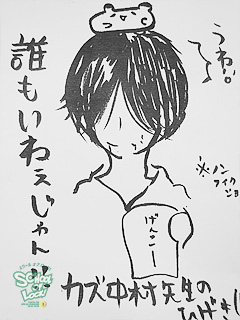 うわ。
誰もいねぇじゃん!!
※ノン
フィク
ション
げんこー
カズ中村先生の
ひげき!!
SCHOOL
OF
LOCK!